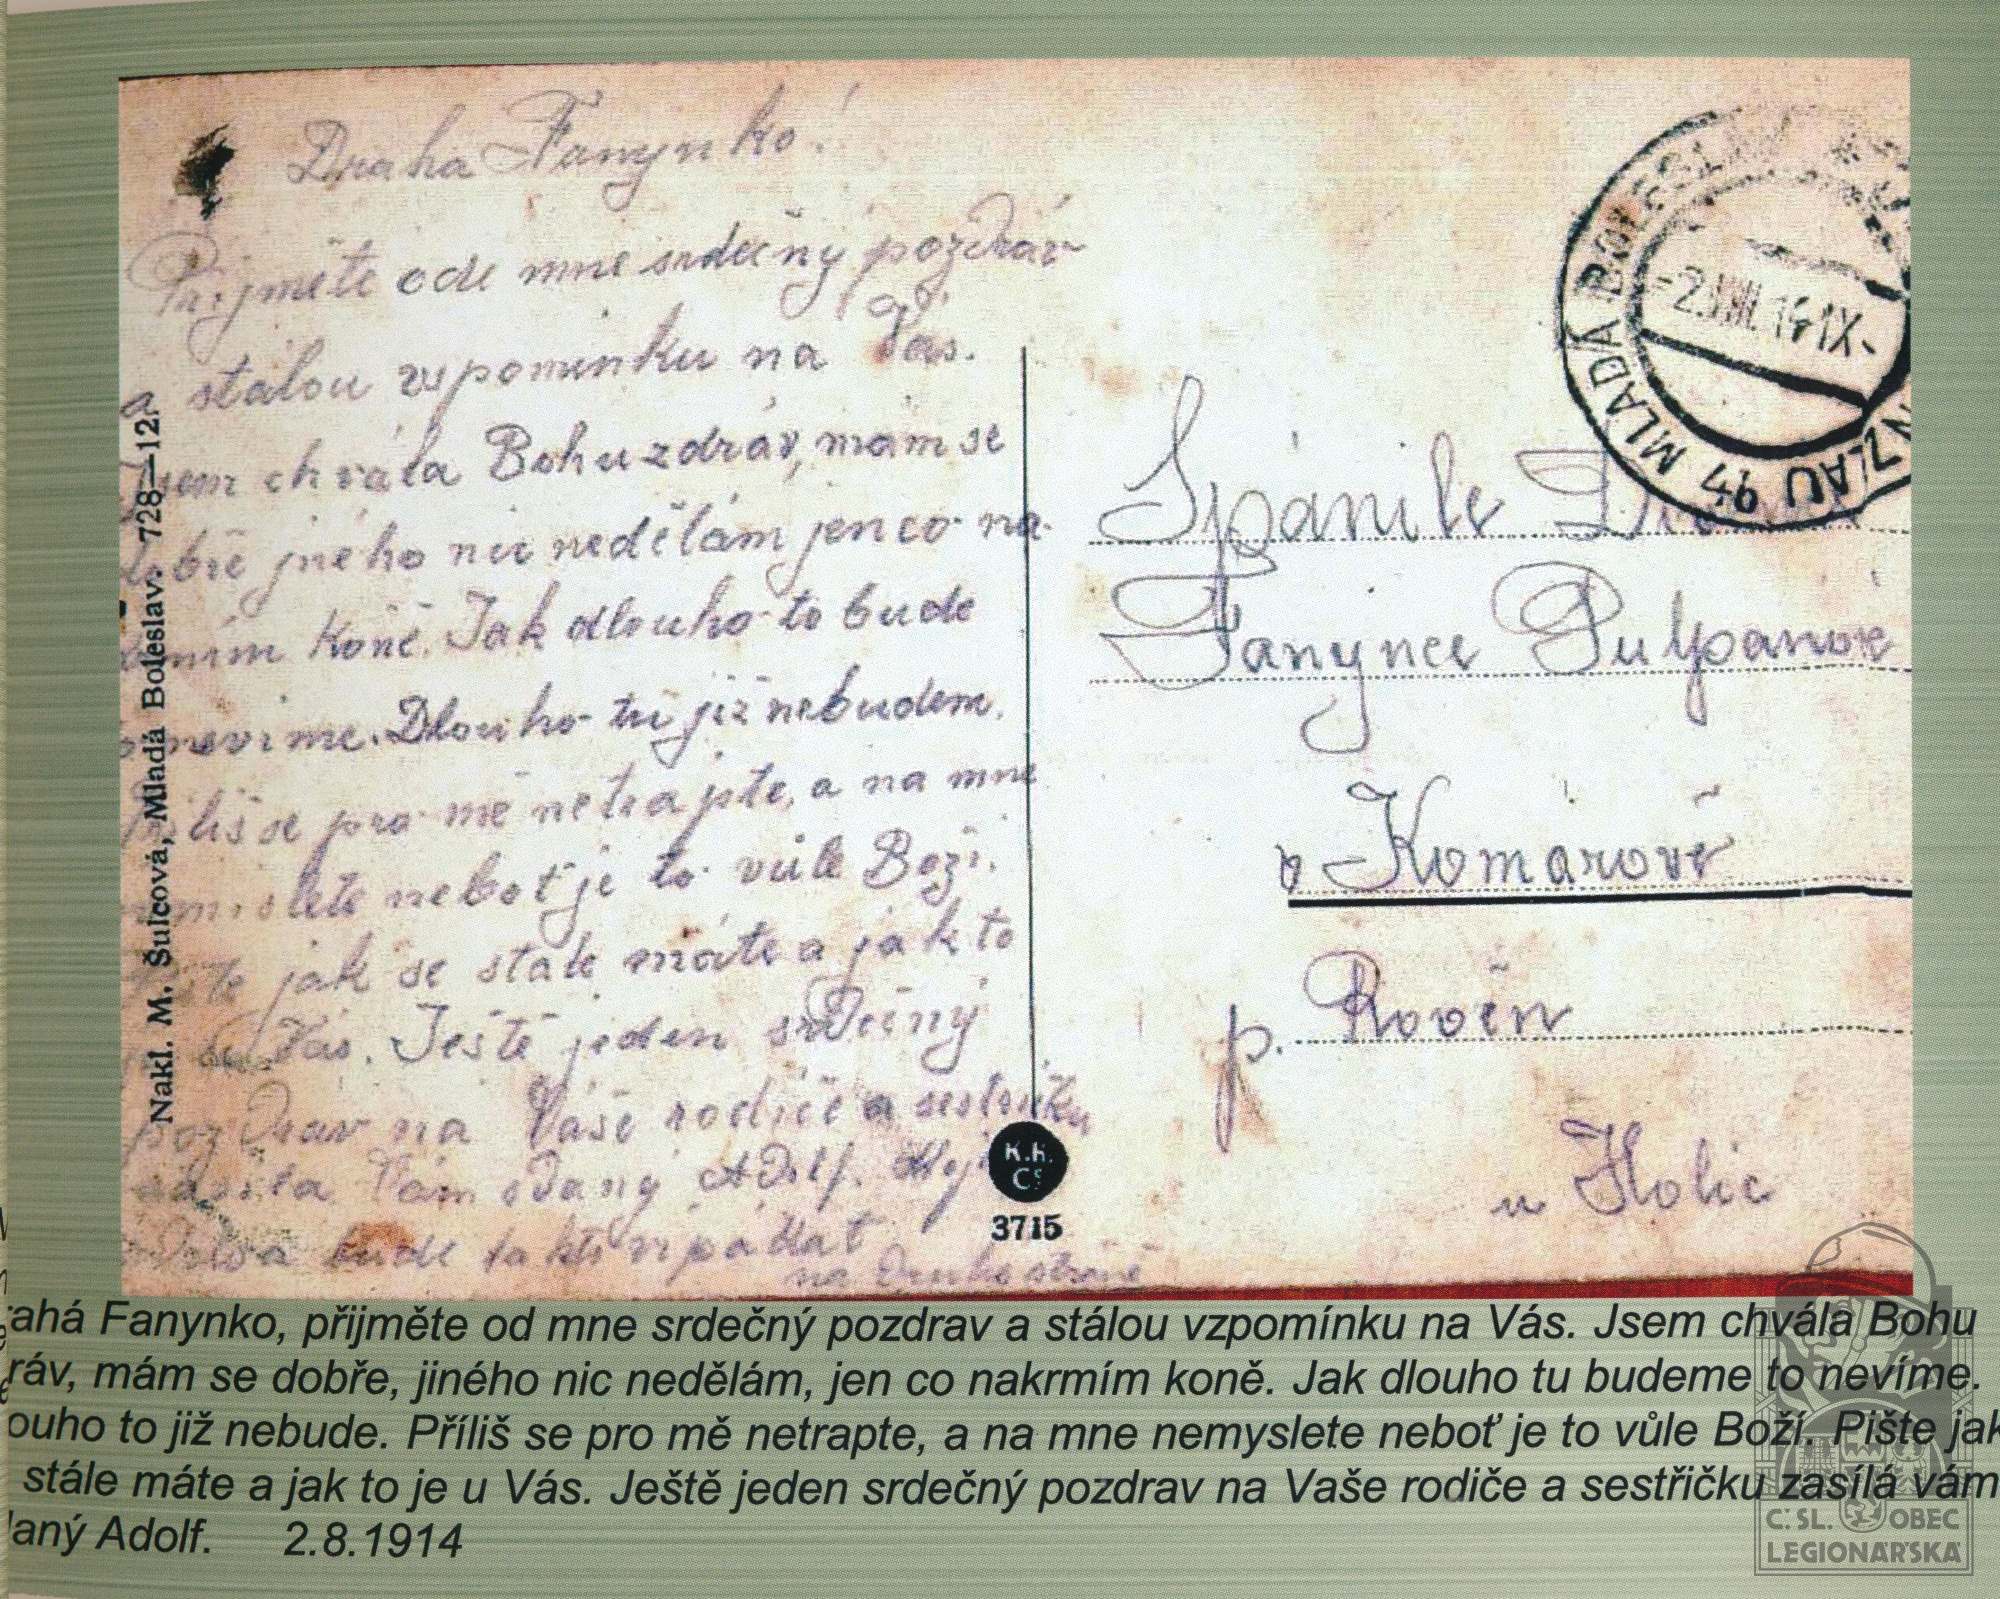 Draha Fanynko!
Přijměte ode mne srdečný pozdráv
a stálou vzpominku na Vás.
Jsem chvála Bohu zdráv, mám se
dobře jného nic nedělám jen co na-
krmím Koně. Jak dlouho to bude
to nevime. Dlouho tu již nebudem.
Příliš se pro mě netrapte, a na mne
nemislete neboť je to vúle Boží.
Pište jak se stále máte a jak to
je u Vás. Ještě jeden srdečný
pozdrav na Vaše rodiče a sestřičku
zásíla Vám oďaný Adolf.
bude takto vipádat
na druhe straně
Nakl. M. Šulcová, Mladá Boleslav. 728—12.
K.k.
3715
MLADÁ BOLESLAV
-2.VIII.14 IX-
Spanile
Fanynce Pulpanove
v Komárově
p. Rověn
u Holic
rahá Fanynko, přijměte od mne srdečný pozdrav a stálou vzpomínku na Vás. Jsem chvála Bohu
ráv, mám se dobře, jiného nic nedělám, jen co nakrmím koně. Jak dlouho tu budeme to nevíme.
ouho to již nebude. Příliš se pro mě netrapte, a na mne nemyslete neboť je to vůle Boží. Pište jak
stále máte a jak to je u Vás. Ještě jeden srdečný pozdrav na Vaše rodiče a sestřičku zasílá vám
laný Adolf. 2.8.1914
Č. SL. OBEC
LEGIONÁŘSKÁ